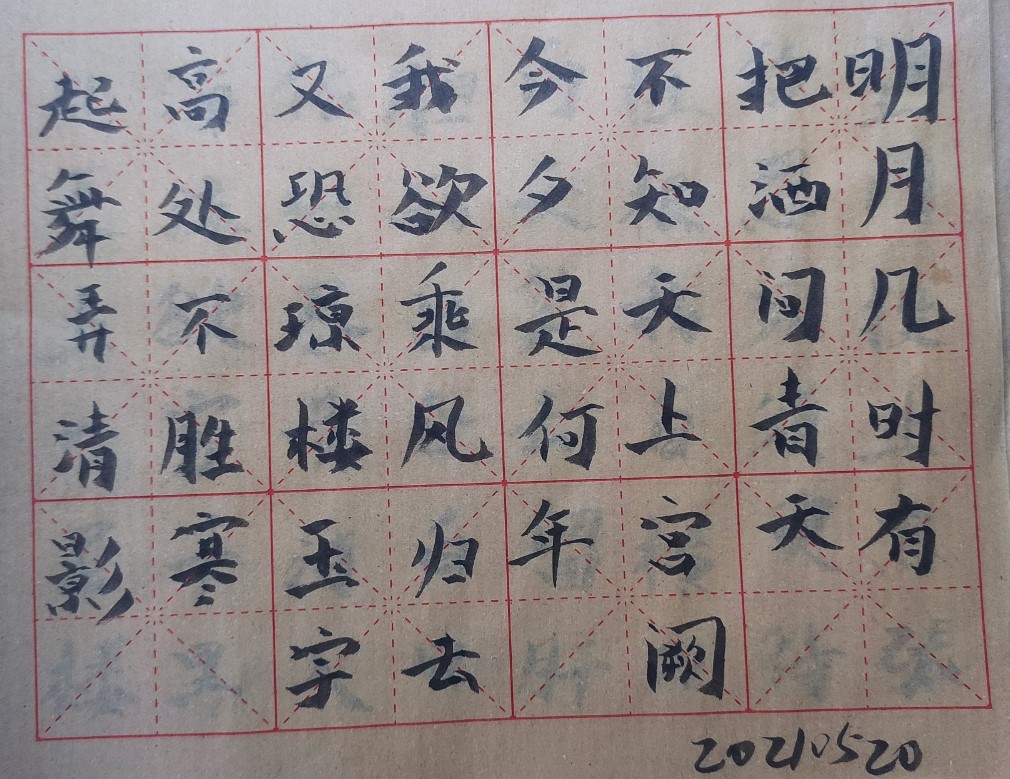 明月几时有
把酒问青天
不知天上宫阙
今夕是何年
我欲乘风归去
又恐琼楼玉宇
高处不胜寒
起舞弄清影
20210520